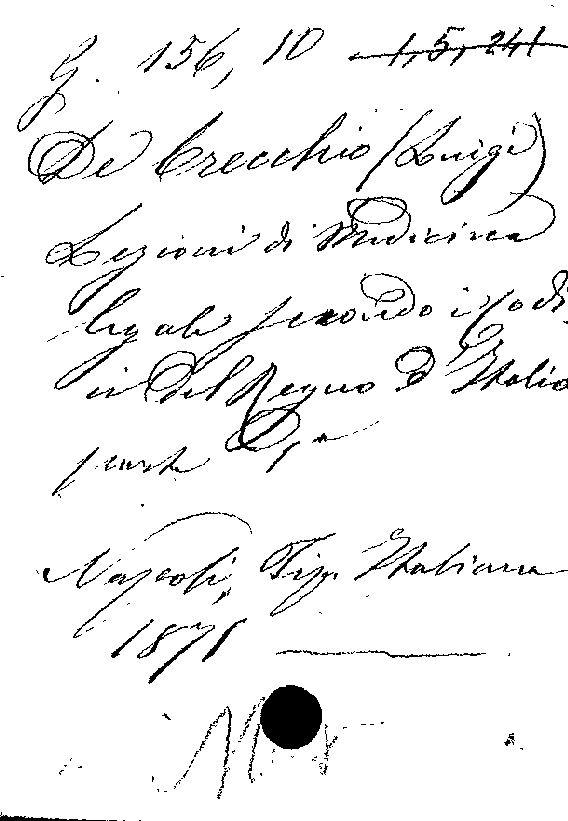 G. 156, 10 1, 5, 241
De Crecchio (Luigi)
Lezioni di Medicina
legale secondo i Codi
ci del Regno d'Italia
parte 1ª
Napoli, Tip. Italiana
1875